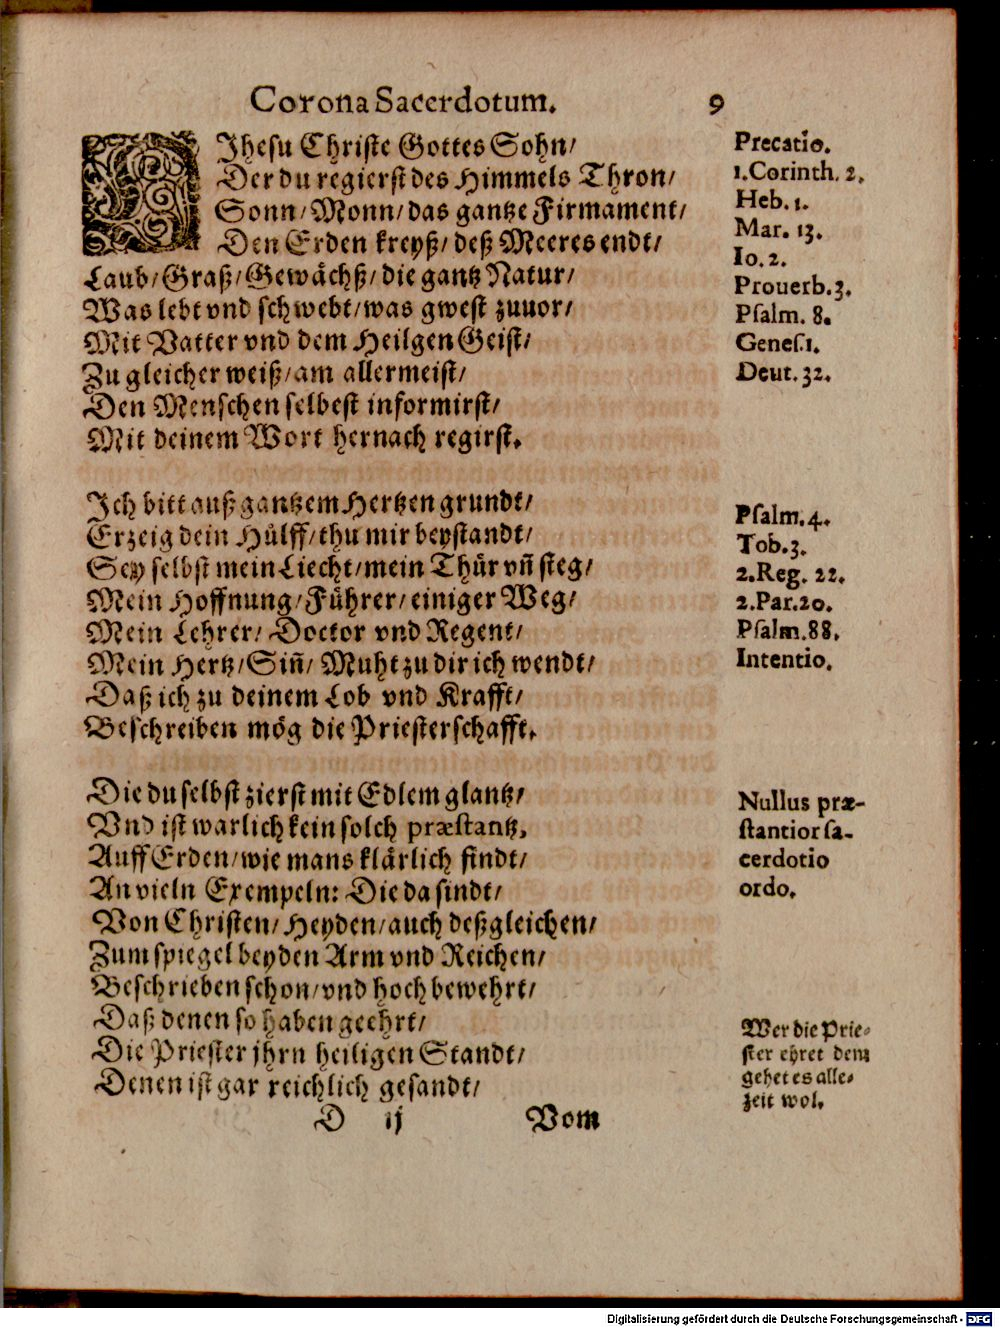 Corona Sacerdotum. 9
O Jhesu Christe Gottes Sohn/
Der du regierst des Himmels Thron/
Sonn/Monn/das gantze Firmament/
Den Erden kreyß/ deß Meeres endt/
Laub/Graß/Gewächß/die gantz Natur/
Was lebt vnd schwebt/was gwest zuuor/
Mit Vatter vnd dem Heilgen Geist/
Zu gleicher weiß/am allermeist/
Den Menschen selbest informirst/
Mit deinem Wort hernach regirst.
Precatio.
1.Corinth. 2.
Heb. 1.
Mar. 13.
Io. 2.
Prouerb.3.
Psalm. 8.
Genes.1.
Deut. 32.
Ich bitt auß gantzem Hertzen grundt/
Erzeig dein Hülff/thu mir beystandt/
Sey selbst mein Liecht/mein Thür vñ steg/
Mein Hoffnung/Führer/einiger Weg/
Mein Lehrer/ Doctor vnd Regent/
Mein Hertz/Siñ/ Muht zu dir ich wendt/
Daß ich zu deinem Lob vnd Krafft/
Beschreiben mög die Priesterschafft.
Psalm.4.
Tob.3.
2.Reg. 22.
2.Par.20.
Psalm.88.
Intentio.
Die du selbst zierst mit Edlem glantz/
Vnd ist warlich kein solch præstantz,
Auff Erden/wie mans klärlich findt/
An vieln Exempeln: Die da sindt/
Von Christen/Heyden/auch deßgleichen/
Zum spiegel beyden Arm vnd Reichen/
Beschrieben schon/vnd hoch bewehrt/
Daß denen so haben geehrt/
Die Priester jhrn heiligen Standt/
Denen ist gar reichlich gesandt/
Nullus præ-
stantior sa-
cerdotio
ordo.
Wer die Prie-
ster ehret dem
gehet es alle-
zeit wol.
D ij Vom
Digitalisierung gefördert durch die Deutsche Forschungsgemeinschaft - DFG